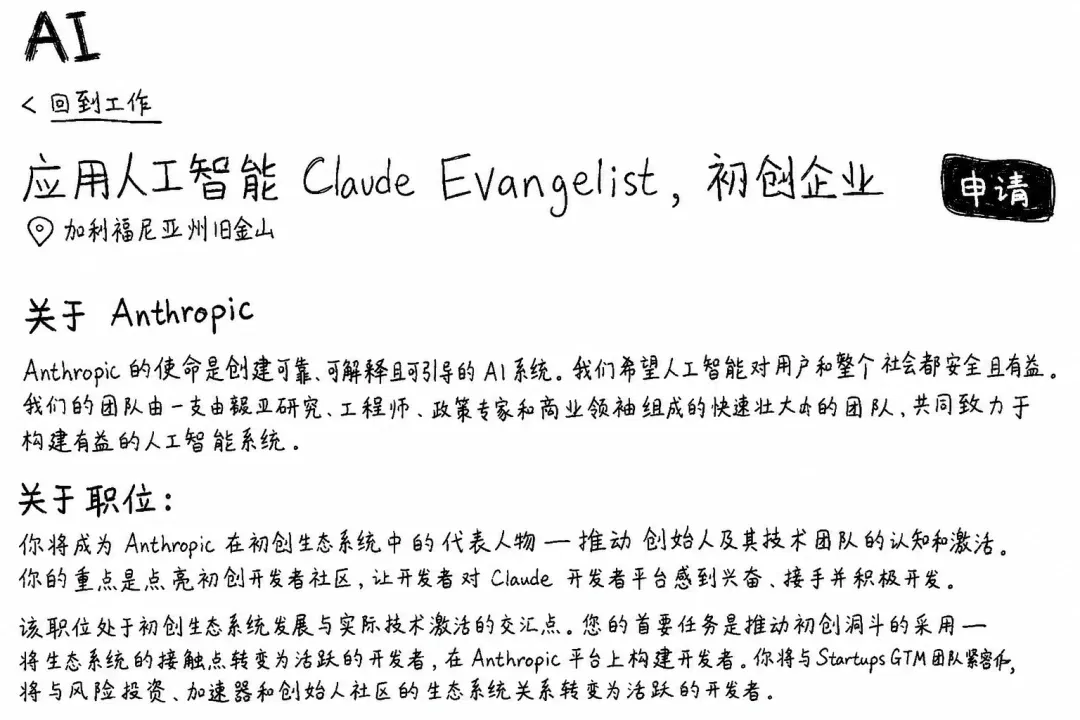 AI
< 回到工作
应用人工智能 Claude Evangelist, 初创企业
申请
加利福尼亚州旧金山
关于 Anthropic
Anthropic 的使命是创建可靠、可解释且可引导的 AI 系统。我们希望人工智能对用户和整个社会都安全且有益。
我们的团队由一支由 研究、工程师、政策专家和商业领袖组成的快速壮大 的团队,共同致力于
构建有益的人工智能系统。
关于职位:
你将成为 Anthropic 在初创生态系统中的代表人物 — 推动创始人及其技术团队的认知和激活。
你的重点是点亮初创开发者社区,让开发者对 Claude 开发者平台感到兴奋、接手并积极开发。
该职位处于初创生态系统发展与实际技术激活的交汇点。您的首要任务是推动初创洞斗的采用 —
将生态系统的接触点转变为活跃的开发者,在 Anthropic 平台上构建开发者。你将与 Startups GTM 团队紧密
将与风险投资、加速器和创始人社区的生态系统关系转变为活跃的开发者。